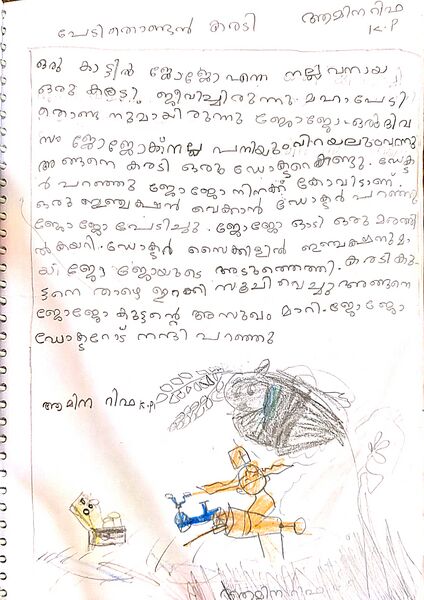 ആമിന റിഫ
K.P
പേടിതൊണ്ടൻ കരടി
ഒരു കാട്ടിൽ ജോജോ എന്ന നല്ലവനായ
ഒരു കരടി ജീവിച്ചിരുന്നു. മഹാപേടി
തൊണ്ടനുമായിരുന്നു ജോജോ. ഒരുദിവ
സം ജോജോക്ക് നല്ല പനിയും വിറയലും വന്നു
അങ്ങനെ കരടി ഒരു ഡോക്ടറെ കണ്ടു. ഡോക്ട
ർ പറഞ്ഞു ജോജോ നിനക്ക് കോവിടാണ്.
ഒരു ഇഞ്ചക്ഷൻ വെക്കാൻ ഡോക്ടർ പറഞ്ഞു
ജോജോ പേടിച്ചു. ജോജോ ഓടി ഒരു മരത്തി
ൽ കയറി. ഡോക്ടർ സൈക്കിളിൽ ഇഞ്ചക്ഷനുമാ
യി ജോജോയുടെ അടുത്തെത്തി. കരടികു
ട്ടനെ താഴെ ഇറക്കി സൂചി വെച്ചു അങ്ങനെ
ജോജോ കുട്ടന്റെ അസുഖം മാറി. ജോജോ
ഡോക്ടറോട് നന്ദി പറഞ്ഞു
ആമിന റിഫ K.P
ആമിന റിഫ